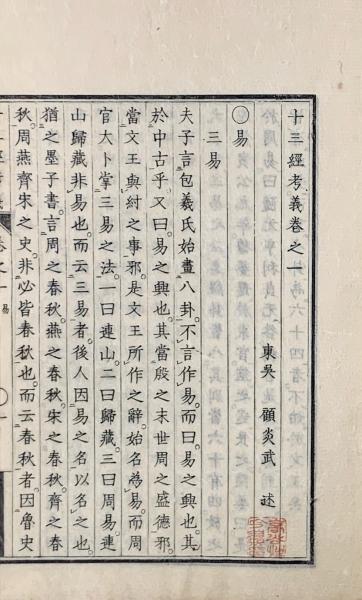 十三經考義卷之一
東吳 顧炎武 述
易
三易
夫子言包羲氏始畫八卦不言作易而曰易之興也其
於中古乎又曰易之興也其當殷之末世周之盛德邪
當文王與紂之事邪是文王所作之辭始名為易而周
官大卜掌三易之法一曰連山二曰歸藏三曰周易連
山歸藏非易也而云三易者後人因易之名以名之也
猶之墨子書言周之春秋燕之春秋宋之春秋齊之春
秋周燕齊宋之史非必皆春秋也而云春秋者因魯史